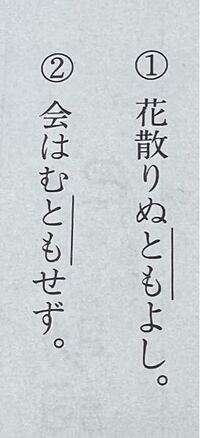 ① 花散りぬともよし。
② 会はむともせず。